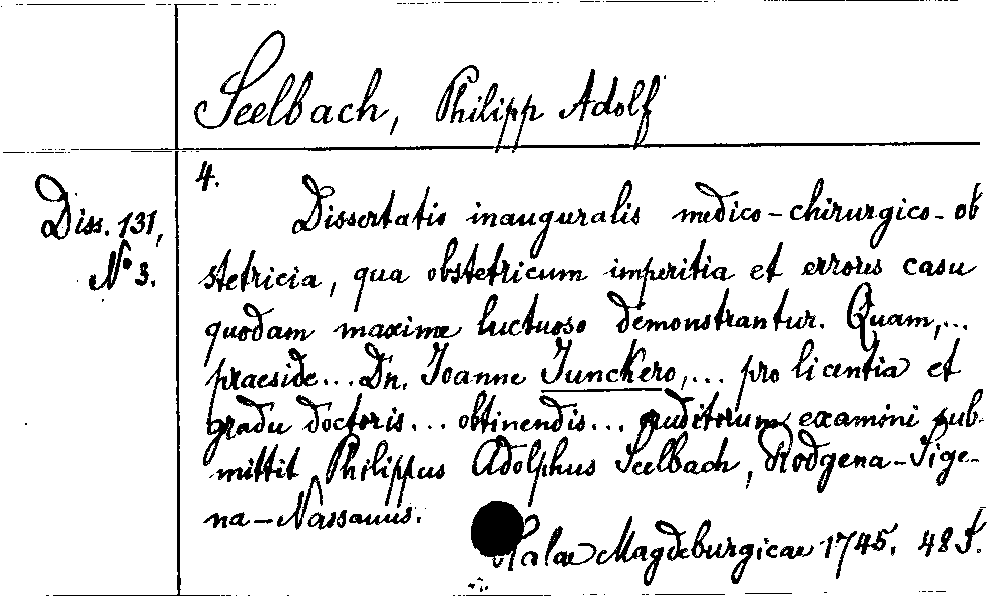 Seelbach, Philipp Adolf
4.
Diss. 131,
No 3.
Dissertatio inauguralis medico-chirurgico-ob
stetricia, qua obstetricum imperitia et errores casu
quodam maxime luctuoso demonstrantur. Quam,...
praeside... Dn. Joanne Junckero,... pro licentia et
gradu doctoris... obtinendis... eruditorum examini sub-
mittit Philippus Adolphus Seelbach, Rodgena-Sige-
na-Nassavus.
Halae Magdeburgicae 1745. 48 S.